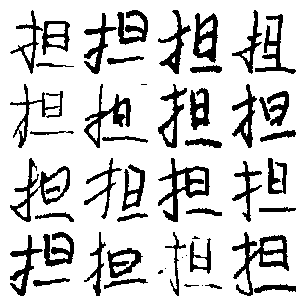 担担担担
担担担担
担担担担
担担担担